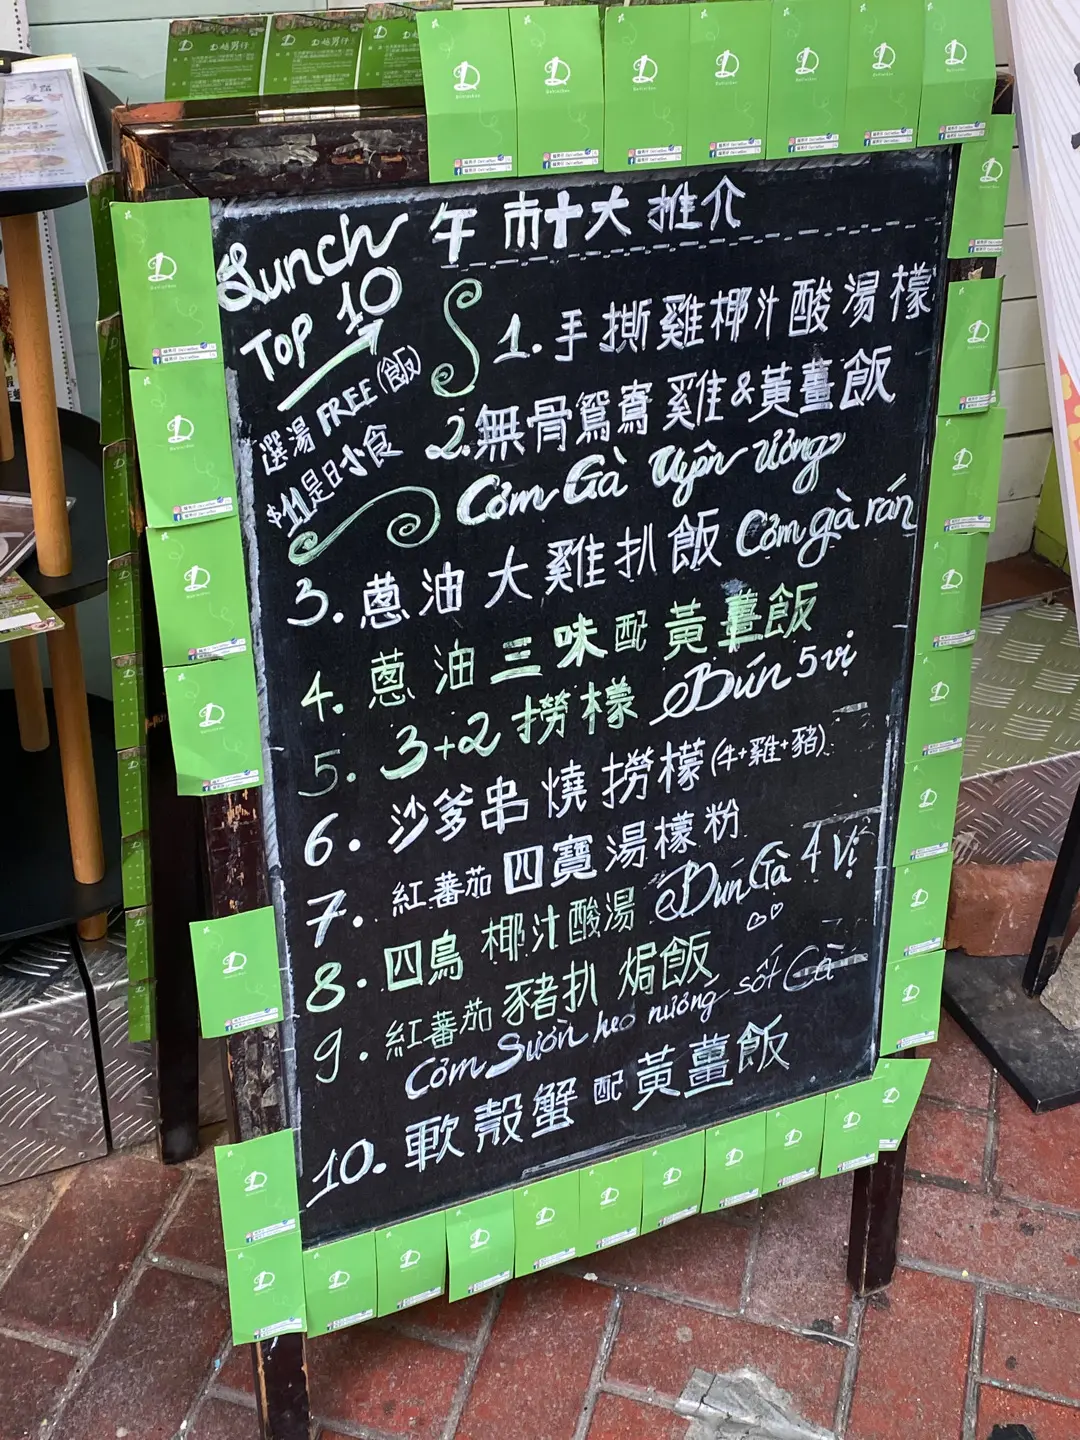 D 越男仔
Lunch 午市十大推介
TOP 10
選湯 FREE (飯)
$11是日小食
1. 手撕雞椰汁酸湯檬
2. 無骨鴛鴦雞&黃薑飯
Cơm Gà Uyên Ương
3. 蔥油大雞扒飯 Cơm gà rán
4. 蔥油三味配黃薑飯
5. 3+2撈檬 Bún 5 vị
6. 沙爹串燒撈檬(牛+雞+豬)
7. 紅蕃茄四寶湯檬粉
8. 四鳥椰汁酸湯 Bún Gà 4 Vị
9. 紅蕃茄豬扒焗飯
Cơm Sườn heo nướng sốt Cà
10. 軟殼蟹配黃薑飯